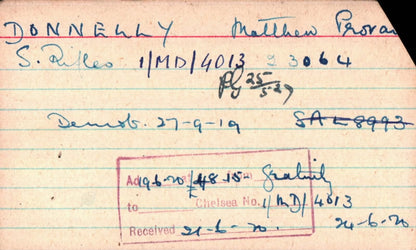 DONNELLY Matthew Provan
S. Rifles 1/MD/4013 23064
25/5.27
Demob. 27-9-19 SA E 8993
Ad 19-6-20 £48-15- Gratuity
to Chelsea No. 1/MD/4013
Received 21-6-20. 24-6-20